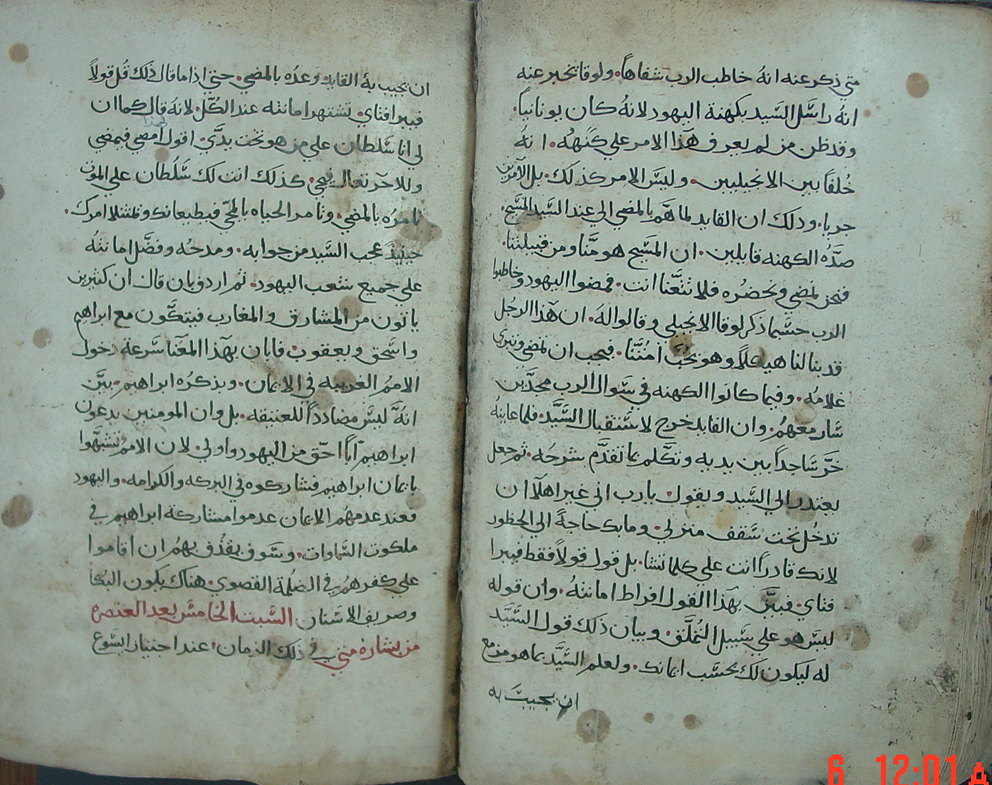 متي ذكر عنه انهُ خاطب الرب شفاهاً. ولوقا تخبر عنه
انه راسَل السَّيد بكهنة اليهود لانهُ كان يونانياً.
وقد ظن من لم يعرف هَذا الامر علي كُنههُ. انهُ
خُلفاً بين الانجيليين. وليسَ الامر كذلك. بل الامرين
جريا. وذلك ان القايد لما هَم بالمضي الي عند السَّيد المسَيح.
صدُه الكهنه قايلين. ان المسَيح هو منَّا ومن قبيلتنا.
فنحن نمضي ونحضره فلا تتعَّنا انت. فمضوا اليهود وخاطبوا
الرب حسَبما ذكر لوقا الانجيلي وقالوا لهُ. ان هَذا الرجُل
قد بنا لنا هيكلاً وهو يحُب امُتنا. فيجب ان تمضي وتبري
غلامهُ. وفيما كانوا الكهنه في سَوال الرب مجدَّين
سَار معهُم. وان القايد خرج لاسَتقبال السَّيَد. فلما عاينهُ
خرَّ سَاجداً بين يديه وتكَّلم بما تقدَّم شرحُه. ثم جعل
يعتدر الي السَّيد ويقول. يارب اني غير اهلاً ان
تدخُل تحت سَقف منزلي. وما بك حاجةً الي الحظور
لانك قادراً انت علي كلما تشا. بل قول قولاً فقط فيبرا
فتاي. فبيَّن بهَذا القول افراط امانتهُ. وان قوله
ليسَ هو علي سَبيل التمُلَّق. وبيان ذلك قول السَّيَد
له ليكون لك بحسَب ايمانك. ولعلم السَّيَد بما هو مزمع
ان يجيبَ به
ان يجيب بهُ القايد وعدُه بالمضي. حتي اذا ما قال ذلك قُل قولاً
فيبرا فتاي. تشتهر امانته عند الكُل. لانهُ قال كما ان
لي انا سَلطان علي من هو تحت يدَيَّ. اقول لهذا امضي فيمضي
وللاخر تعال فيجي. كذلك انت لك سَلُطان علي الموت
تامرُه بالمضي. وتامر الحياه بالمجَي فيطيعانك ويمتثلا امرك.
حينيذٍ عجب السَّيد من جوابه. ومدحُه وفضَّل امانتهُ
علي جميع شعب اليهود. ثم اردو بان قال ان كثيرين
ياتون من المشارق والمغارب فيتكَون مع ابراهيم
واسَحق ويعقوب. فابان بهَذا المعَنا سَرعة دخول
الامُم الغريبه في الايمان. وبذكرُه ابراهيم. بيَّن
انهُ ليسَ مضادداً للعتيقه. بل وان المومنين يدعون
ابراهيم اباً احَق من اليهود واولي. لان الامم تشبَّهوا
بايمان ابراهيم فشاركوه في البركه والكرامه. واليهود
فعند عدمهُم الايمان عدموا مشاركة ابراهيم في
ملكوت السَّماوات. وسَوف يقذف بهُم ان اقاموا
علي كفرهُم في الظلُمة القصوي. هناك يكون البكا
وصريف الاسَنان السَّبت الخامسَ بعد العنصره
من بشارة متي في ذلك الزمان. عند اجتياز ايسَوع